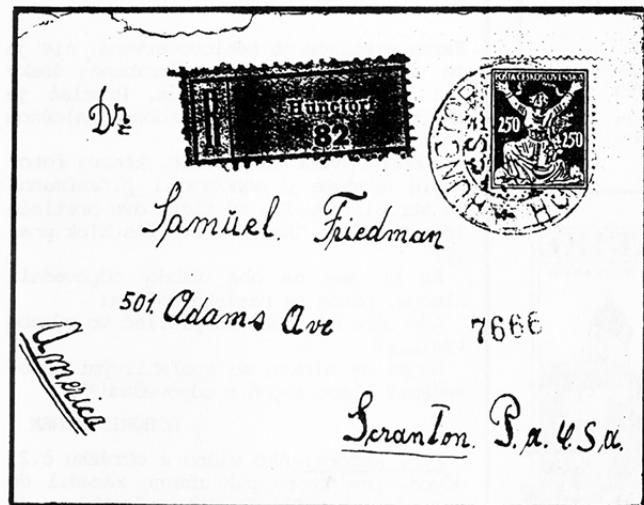 R Hunctorf
82
POŠTA ČESKOSLOVENSKÁ
250 250
HUNCTOR
Dr
Samuel. Friedman
501. Adams Ave
7666
America
Scranton. P.a. U.S.a.